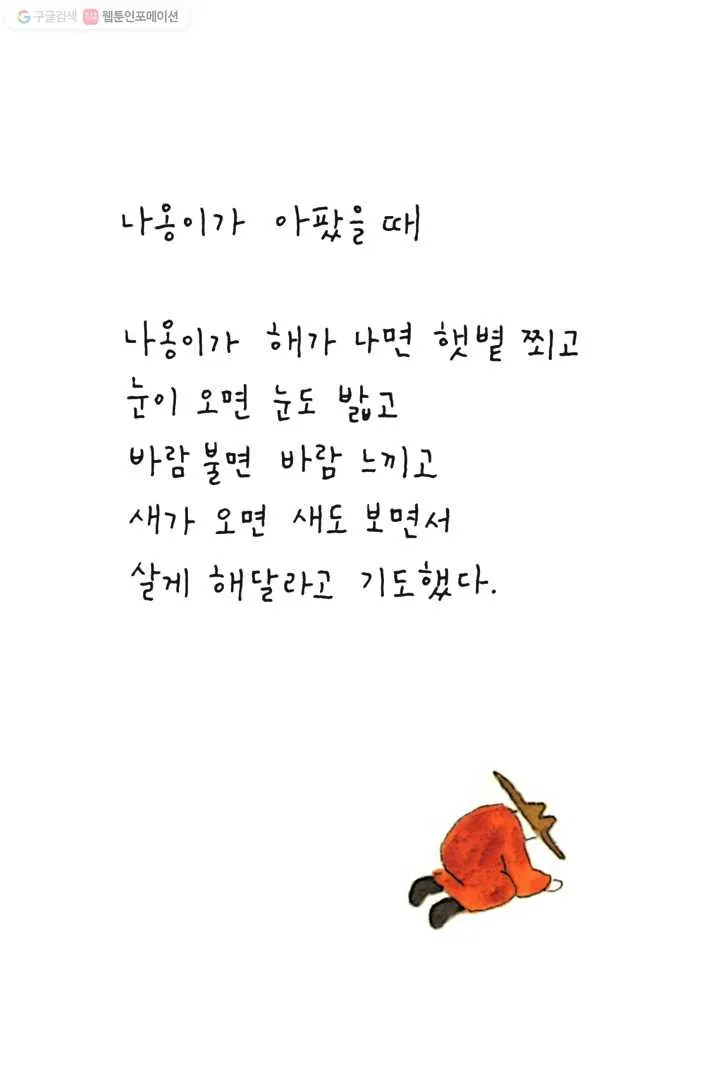 구글검색 웹툰인포메이션
나옹이가 아팠을 때
나옹이가 해가 나면 햇볕 쬐고
눈이 오면 눈도 밟고
바람 불면 바람 느끼고
새가 오면 새도 보면서
살게 해달라고 기도했다.